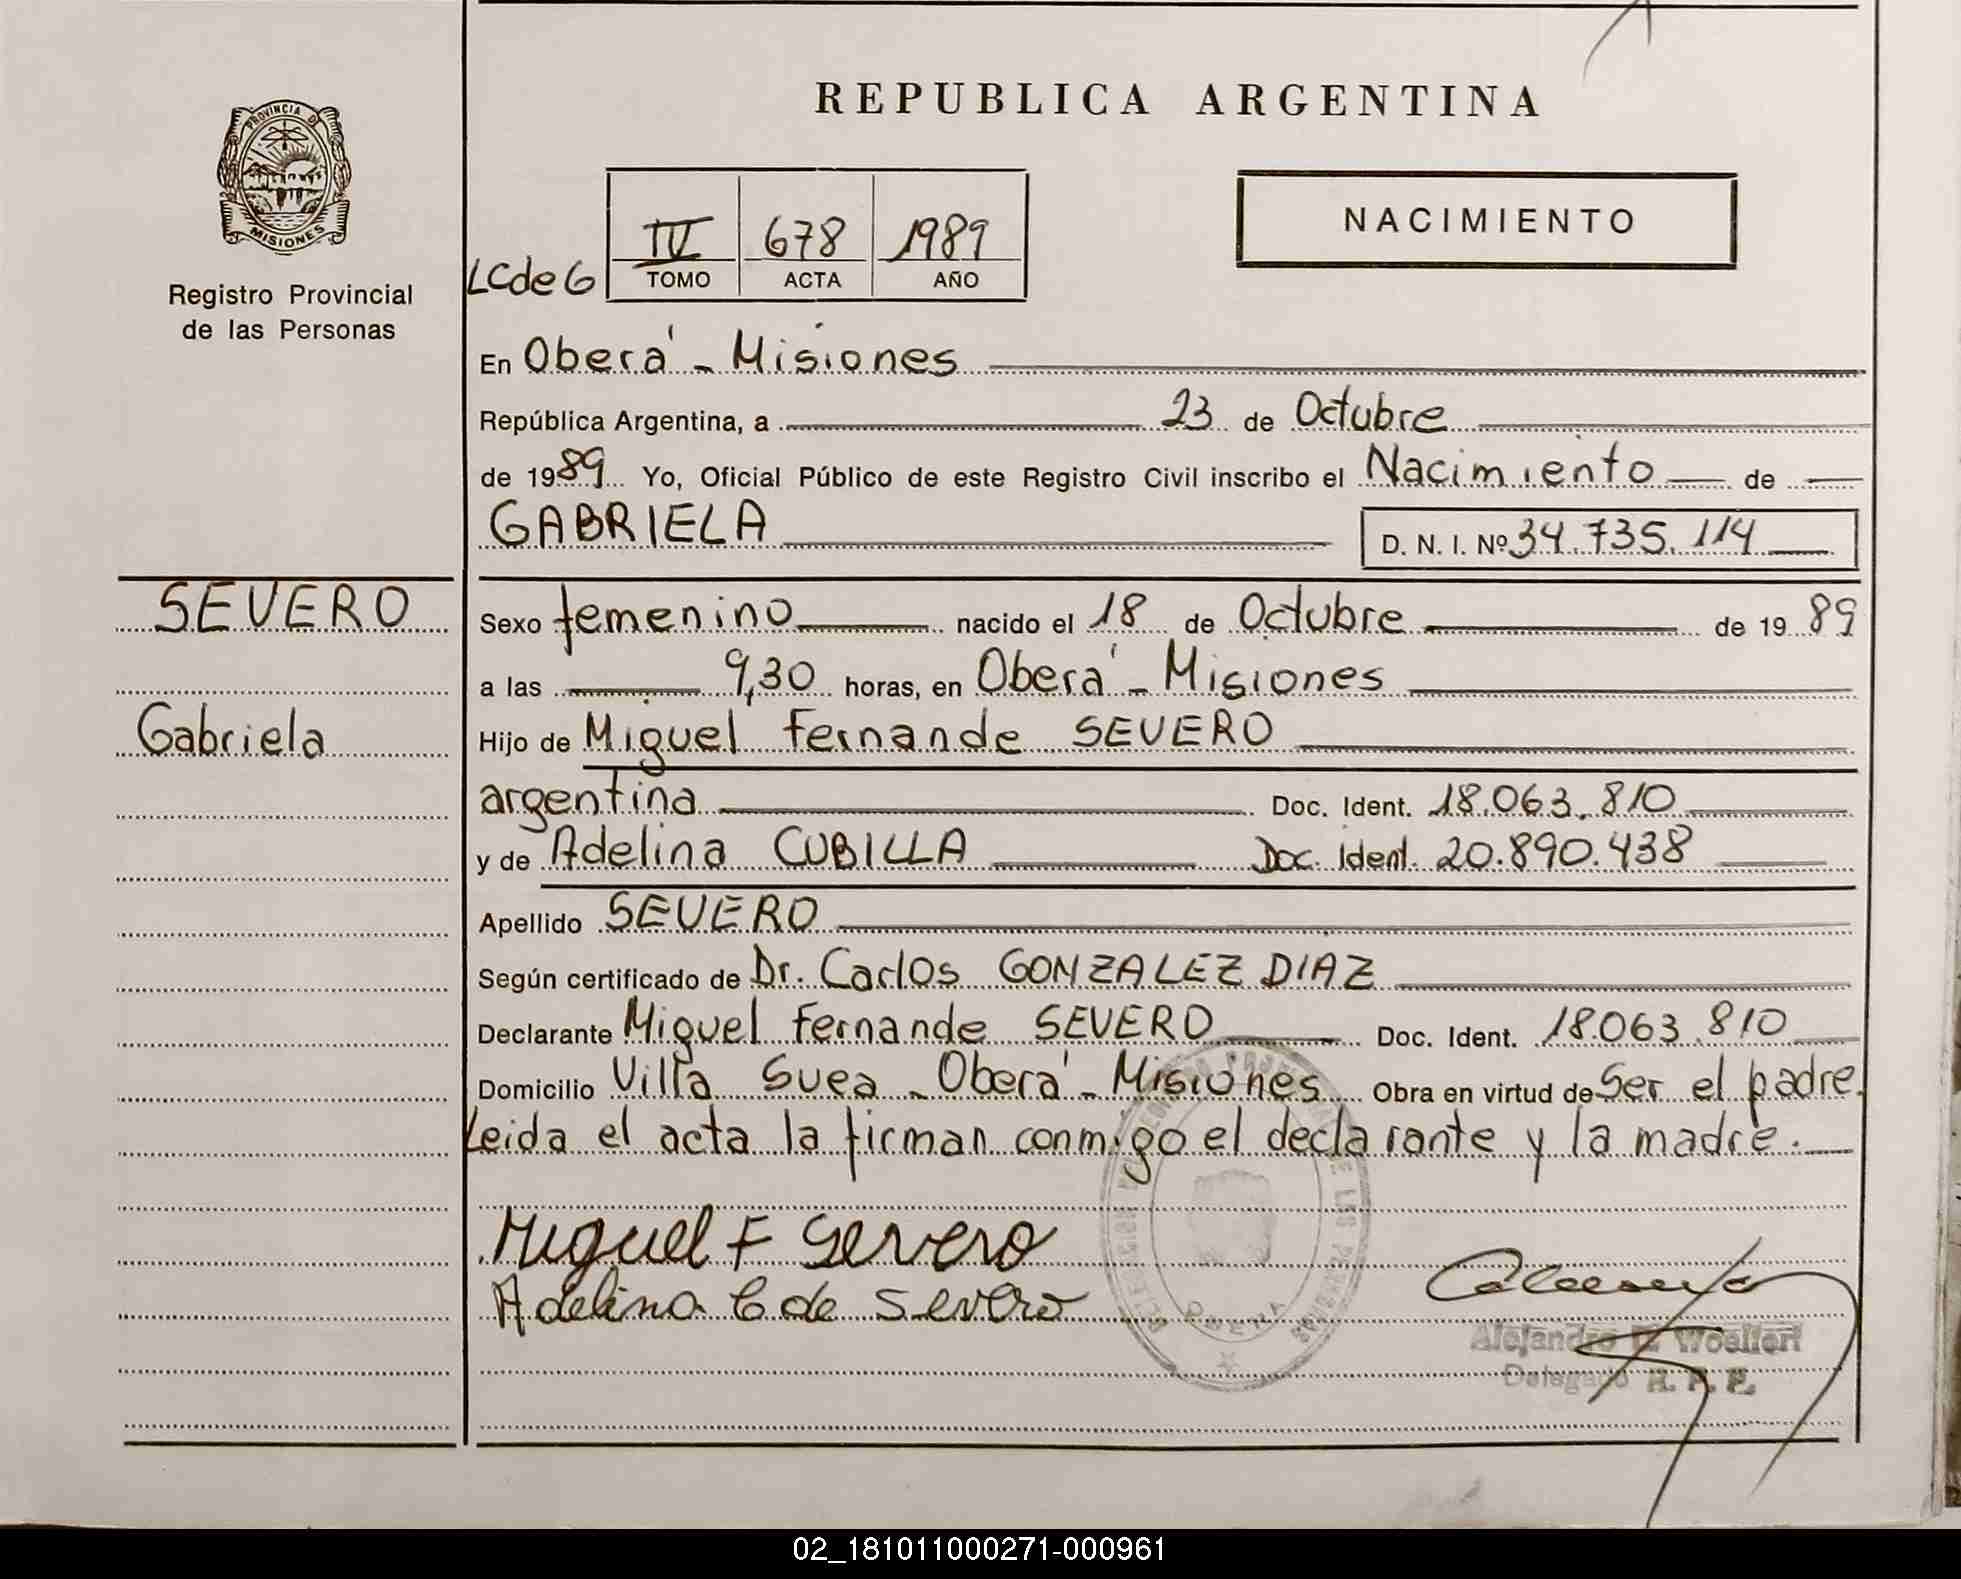 REPUBLICA ARGENTINA
PROVINCIA DE
MISIONES
Registro Provincial
de las Personas
NACIMIENTO
LCde6
IV 678 1989
TOMO ACTA AÑO
En Oberá - Misiones
República Argentina, a 23 de Octubre
de 1989 Yo, Oficial Público de este Registro Civil inscribo el Nacimiento de
GABRIELA D. N. I. Nº 34.735.114
SEVERO
Gabriela
Sexo femenino nacido el 18 de Octubre de 1989
a las 9,30 horas, en Oberá - Misiones
Hijo de Miguel Fernande SEVERO
argentina Doc. Ident. 18.063.810
y de Adelina CUBILLA Doc. Ident. 20.890.438
Apellido SEVERO
Según certificado de Dr. Carlos GONZALEZ DIAZ
Declarante Miguel Fernande SEVERO Doc. Ident. 18.063.810
Domicilio Villa Suea - Oberá - Misiones Obra en virtud de Ser el padre.
Leida el acta la firman conmigo el declarante y la madre.
Miguel F Severo
Adelina C de Severo
OBERA
Alejandro Woellert
Delegado R. P. P.
02_181011000271-000961